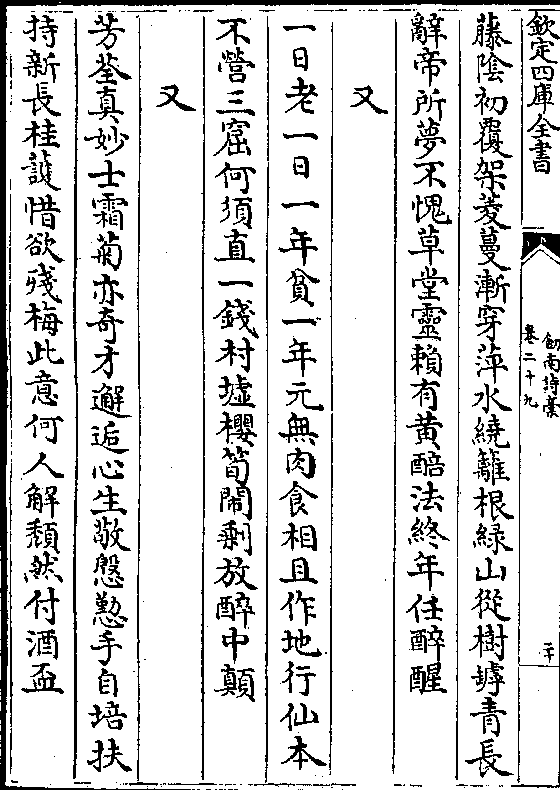 欽定四庫全書
劒南詩藁
卷二十九
二十
藤陰初覆架菱蔓漸穿萍水繞籬根緑山從樹罅青長
辭帝所夢不愧草堂靈賴有黄醅法終年任醉醒
又
一日老一日一年貧一年元無肉食相且作地行仙本
不營三窟何須直一錢村墟櫻筍閙剰放醉中顛
又
芳荃真妙士霜菊亦奇才邂逅心生敬慇懃手自培扶
持新長桂護惜欲殘梅此意何人解頽然付酒盃